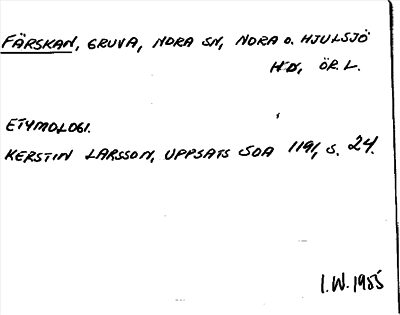 FÄRSKAN, GRUVA, NORA SN, NORA O. HJULSJÖ
HD, ÖR. L.
ETYMOLOGI.
KERSTIN LARSSON, UPPSATS SOA 1191, S. 24.
I.W. 1985